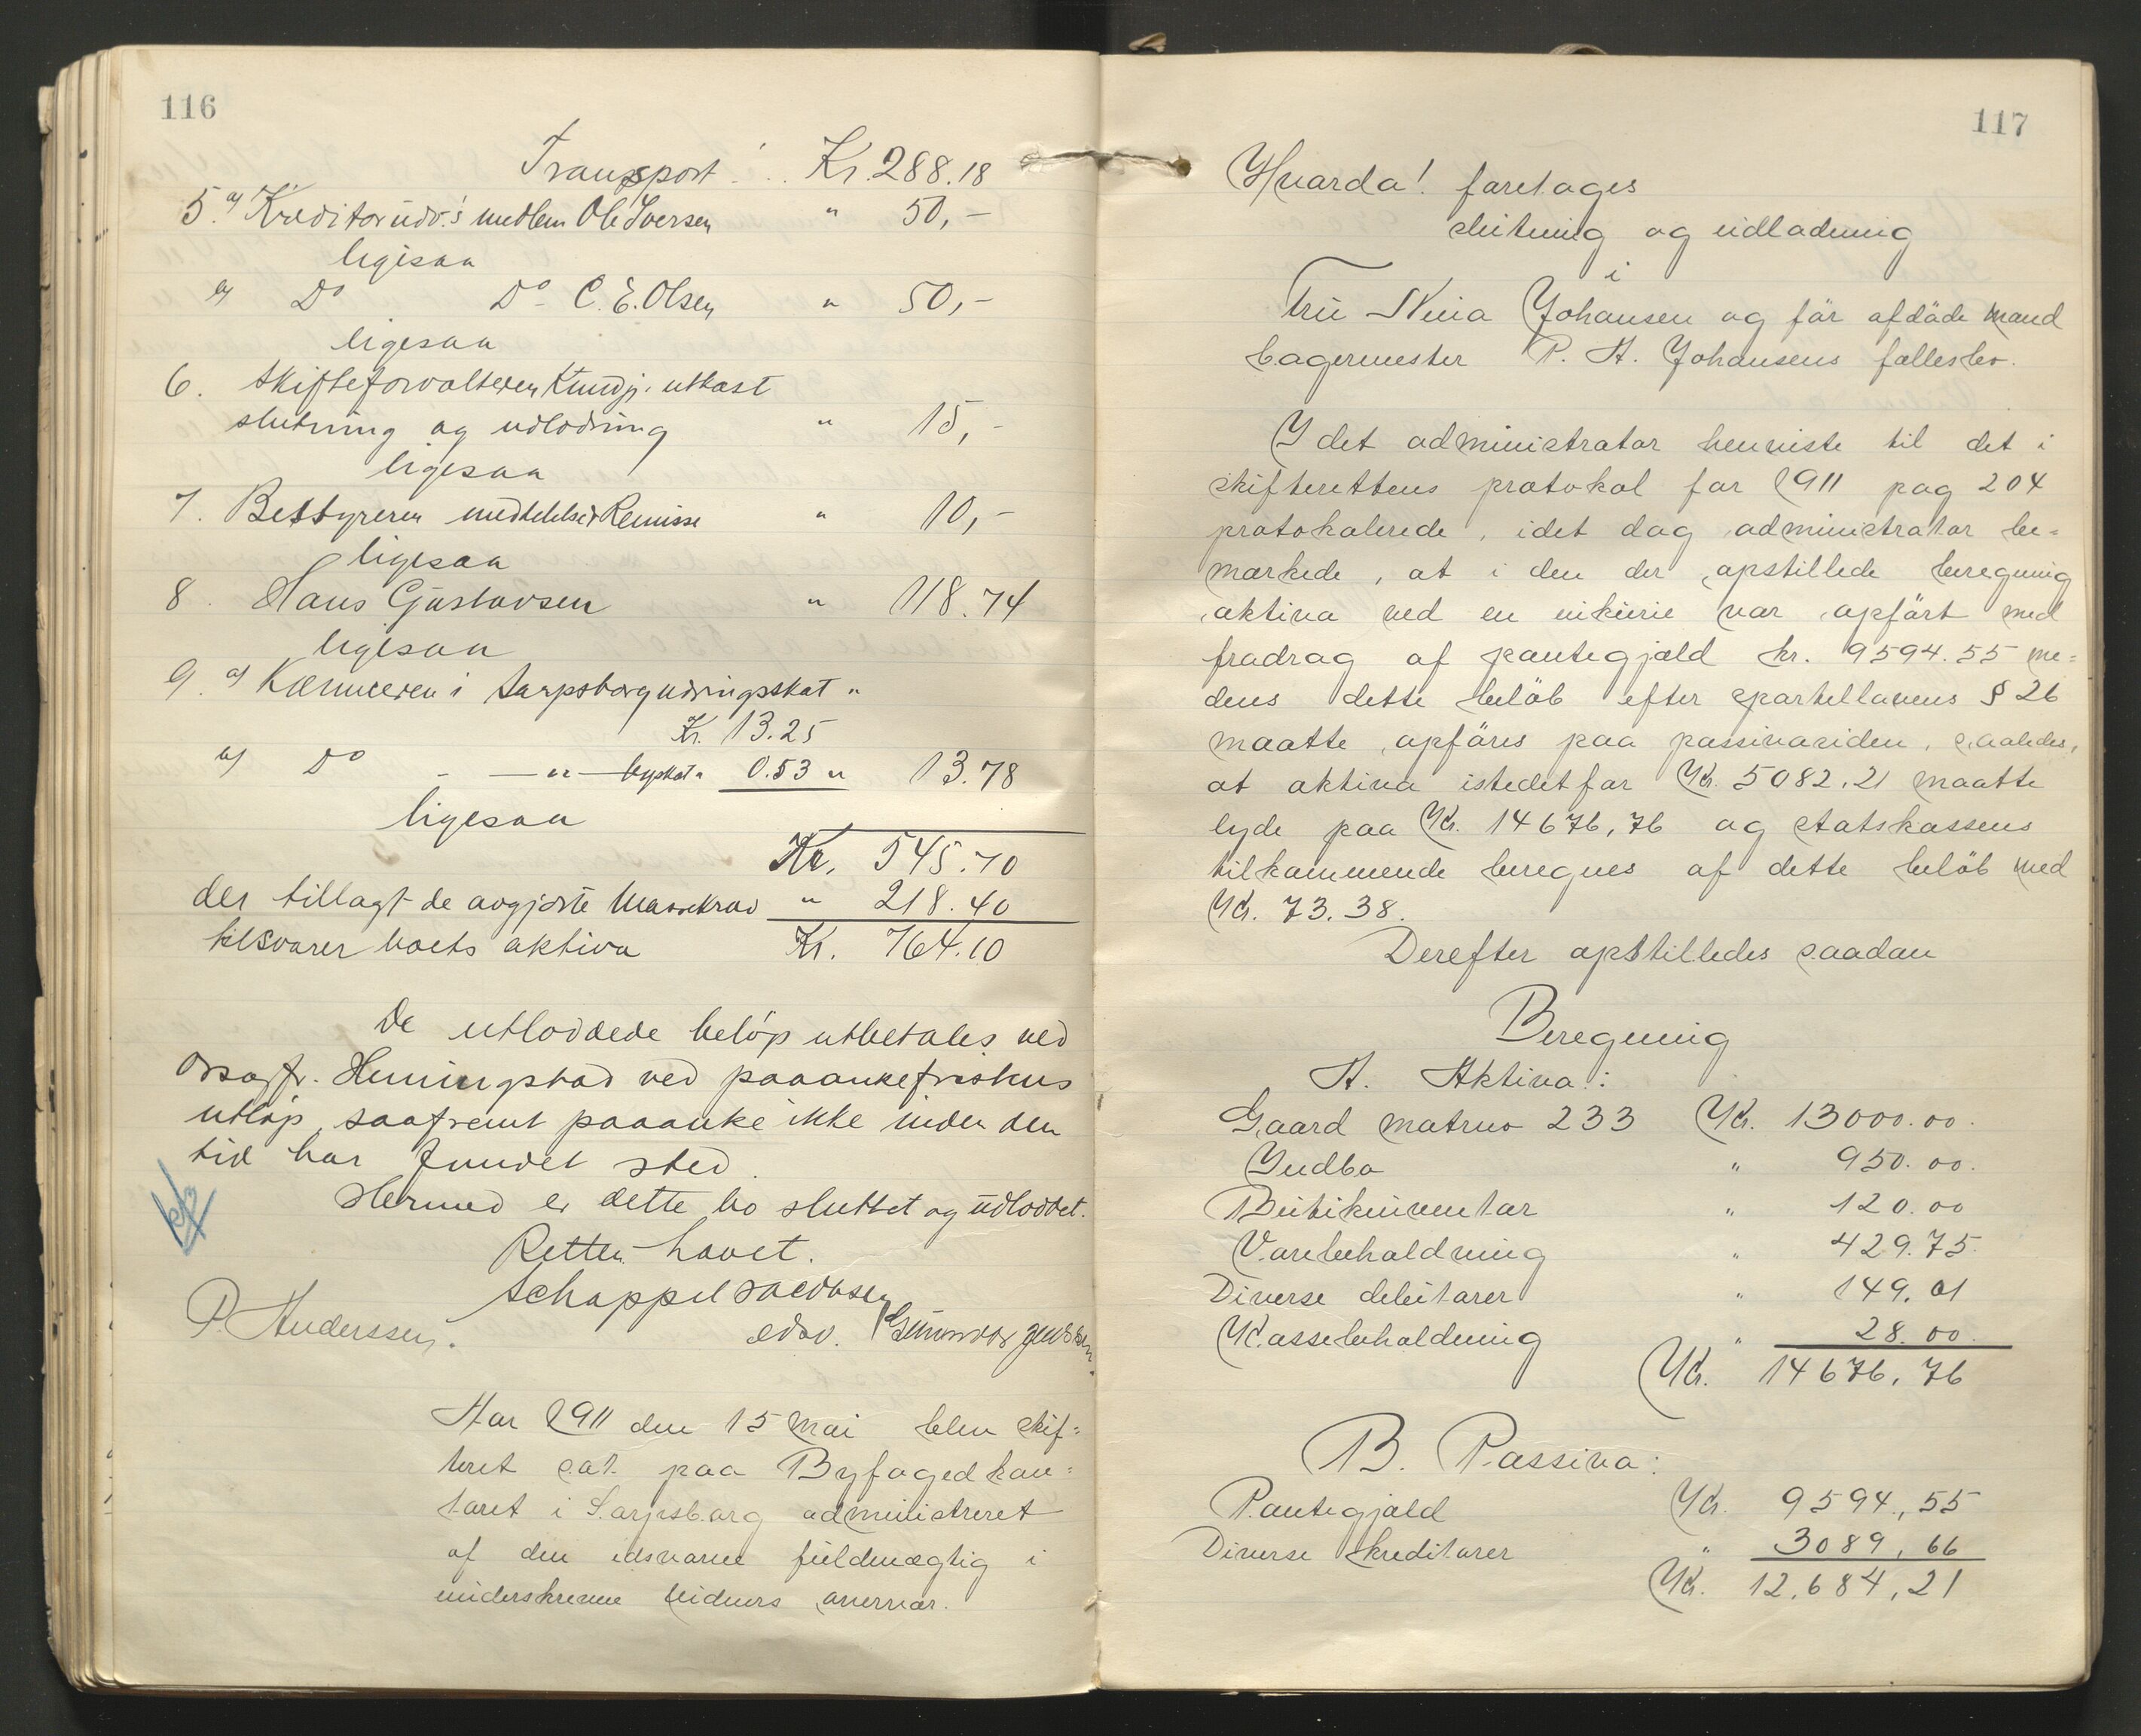 116
Transport . . . Kr. 288.18
5. a) Kreditorudv.'s medlem Ole Iversen " 50,-
ligesaa
b) Do Do - C. E. Olsen " 50,-
ligesaa
6. Skifteforvalteren Kundgj. utkast
slutning og udlodning " 15,-
ligesaa
7. Bestyreren meddelelse & Remisse " 10,-
ligesaa
8. Hans Gustavsen " 118.74
ligesaa
9. a) Kæmneren i Sarpsborg næringsskat "
Kr. 13.25
b) Do - —"— byskat " 0.53 " 13.78
ligesaa
Kr. 545.70
der tillagt de avgjorte Massekrav " 218.40
tilsvarer boets aktiva Kr. 764.10
De utloddede beløp utbetales ved
Orsagfr. Henningstad ved paaankefristens
utløp, saafremt paaanke ikke inden den
tid har fundet sted.
Hermed er dette bo sluttet og udloddet.
Retten hævet.
Schappel Jacobsen
edsv.
P. Anderssen. Gunnvor Jenssen.
Aar 1911 den 15 mai blev skif=
teret sat paa Byfogedkon=
toret i Sarpsborg administreret
af den edsvorne fuldmægtig i
underskrevne vidners overvær.
117
Hvorda! foretages
slutning og udlodning
i
Fru Nina Johansen og før afdøde mand
bagermester P. A. Johansens fællesbo.
Idet administrator henviste til det i
skifterettens protokol for 1911 pag 204
protokolerede, idet dog administrator be=
mærkede, at i den der opstillede beregning
aktiva ved en inkurie var opført med
fradrag af pantegjæld kr. 9594.55 me=
dens dette beløb efter sportellovens § 26
maatte opføres paa passivasiden, saaledes,
at aktiva istedetfor Kr. 5082,21 maatte
lyde paa Kr. 14676,76 og statskassens
tilkommende beregnes af dette beløb med
Kr. 73.38.
Derefter opstilledes saadan
Beregning
A. Aktiva:
Gaard matrno 233 Kr. 13000.00.
Indbo " 950.00.
Butikinventar " 120.00
Varebeholdning " 429.75.
Diverse debitorer " 149.01
Kassebeholdning " 28.00.
Kr. 14676,76
B. Passiva:
Pantegjæld Kr. 9594,55
Diverse kreditorer " 3089,66
Kr. 12.684,21